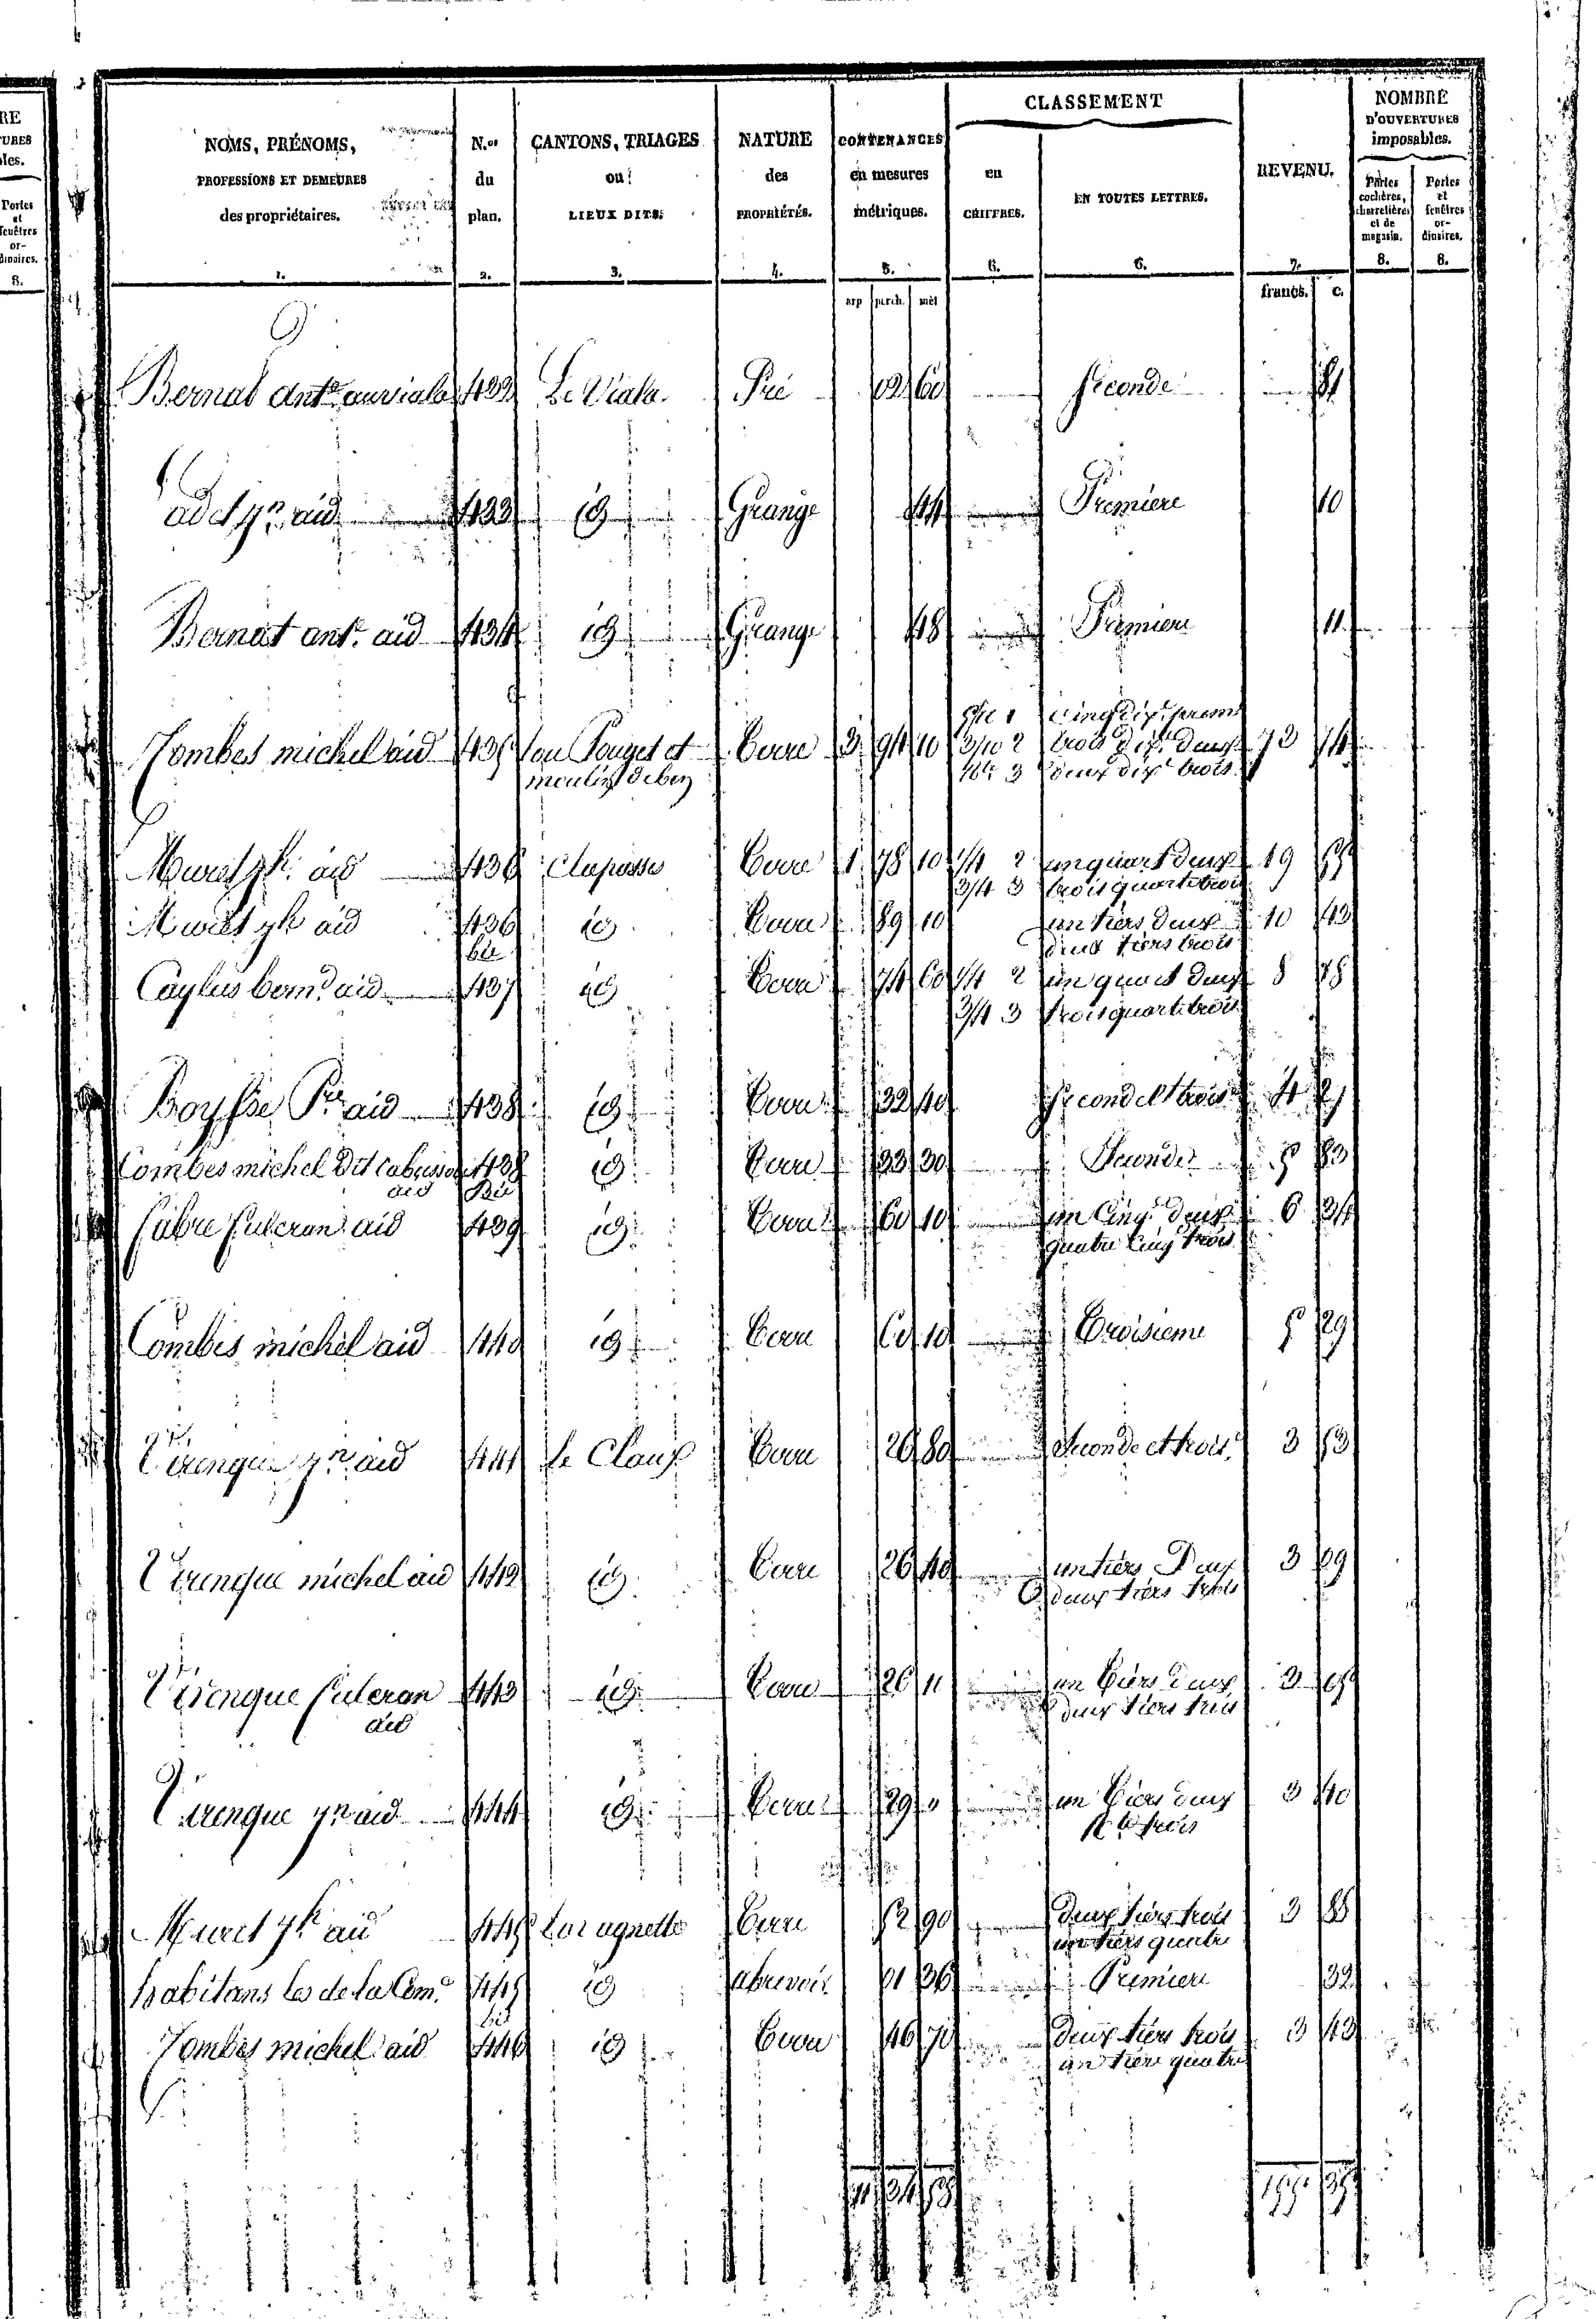 RE
URES
les.
Portes
et
fenêtres
or-
dinaires.
8.
NOMS, PRÉNOMS,
PROFESSIONS ET DEMEURES
des propriétaires.
1.
N.os
du
plan.
2.
CANTONS, TRIAGES
ou
LIEUX DITS.
3.
NATURE
des
PROPRIÉTÉS.
4.
CONTENANCES
en mesures
métriques.
5.
CLASSEMENT
en
CHIFFRES.
6.
EN TOUTES LETTRES.
6.
REVENU.
7.
NOMBRE
D'OUVERTURES
imposables.
Portes
cochères,
charretières
et de
magasin.
8.
Portes
et
fenêtres
or-
dinaires.
8.
arp perch. mèt
francs. c.
Bernat ant.e au viala 432 Le Viala Pré 02 60 Seconde 81
433 id Grange 44 Premiere 10
Bernat ant.e aid 434 id Grange 48 Premiere 11
Combes michel aid 435 Lou Pouget et Terre 3 94 10 5/10 1 cinq dix.e prem 73 74
moulin de 3/10 2 trois dix.e deux
3 deux dix.e trois
Muret aid 436 Claparses Terre 1 78 10 1/4 2 un quart deux 19
3/4 3 trois quarts trois
Muret aid 436 id Terre 89 10 un tiers deux 10 43
bis deux tiers trois
Caylus bern.d aid 437 id Terre 74 60 1/4 2 un quart deux 8 78
3/4 3 trois quarts trois
Boysse P.re aid 438 id Terre 32 40 Seconde et trois 4 21
Combes michel dit 438 id Terre 33 30 Seconde 5 83
aid Bis
Fabre fulcran aid 439 id Terre 60 10 un cinq.e deux 6 34
quatre cinq trois
Combes michel aid 440 id Terre 60 10 Troisieme 5 29
Virenque aid 441 Le Claux Terre 26 80 Seconde et trois.e 3 53
Virenque michel aid 442 id Terre 26 40 un tiers Deux 3 09
deux tiers trois
Virenque fulcran 443 id Terre 26 11 un tiers deux 3 05
aid deux tiers trois
Virenque aid 444 id Terre 29 11 un tiers deux 3 40
trois
Muret aid 445 Terre 52 90 deux tiers trois 3 88
un tiers quatre
habitans les de la Com.e 445 id abreuvoir 01 36 Premiere 32
bis
Combes michel aid 446 id Terre 46 70 deux tiers trois 3 43
un tiers quatre